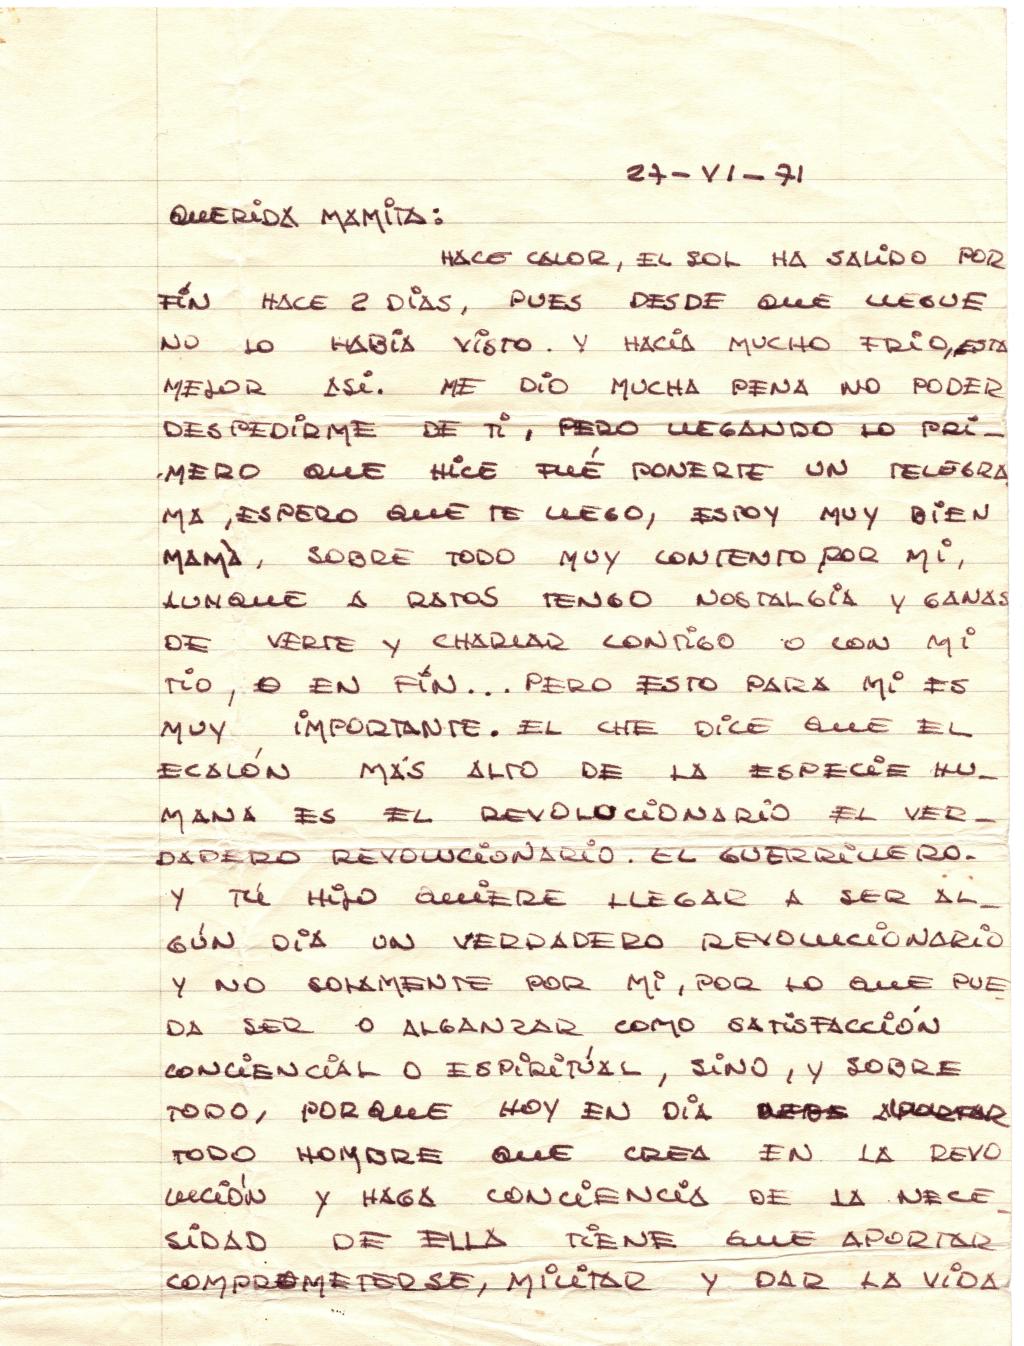 27-VI-71
QUERIDA MAMITA:
HACE CALOR, EL SOL HA SALIDO POR
FÍN HACE 2 DIAS, PUES DESDE QUE LLEGUE
NO LO HABIA VISTO. Y HACIA MUCHO FRIO, ESTA
MEJOR ASI. ME DIO MUCHA PENA NO PODER
DESPEDIRME DE TI, PERO LLEGANDO LO PRI-
MERO QUE HICE FUÉ PONERTE UN TELEGRA
MA, ESPERO QUE TE LLEGO, ESTOY MUY BIEN
MAMÀ, SOBRE TODO MUY CONTENTO POR MI,
AUNQUE A RATOS TENGO NOSTALGIA Y GANAS
DE VERTE Y CHARLAR CONTIGO O CON MI
TIO, O EN FÍN... PERO ESTO PARA MI ES
MUY IMPORTANTE. EL CHE DICE QUE EL
ECALÓN MÁS ALTO DE LA ESPECIE HU-
MANA ES EL REVOLUCIONARIO EL VER-
DADERO REVOLUCIONARIO. EL GUERRILLERO.
Y TÚ HIJO QUIERE LLEGAR A SER AL-
GÚN DIA UN VERDADERO REVOLUCIONARIO
Y NO SOLAMENTE POR MI, POR LO QUE PUE
DA SER O ALGANZAR COMO SATISFACCIÓN
CONCIENCIAL O ESPIRITÚAL, SINO, Y SOBRE
TODO, PORQUE HOY EN DIA DEBE APORTAR
TODO HOMBRE QUE CREA EN LA REVO
LUCIÓN Y HAGA CONCIENCIA DE LA NECE-
SIDAD DE ELLA TIENE QUE APORTAR
COMPROMETERSE, MILITAR Y DAR LA VIDA